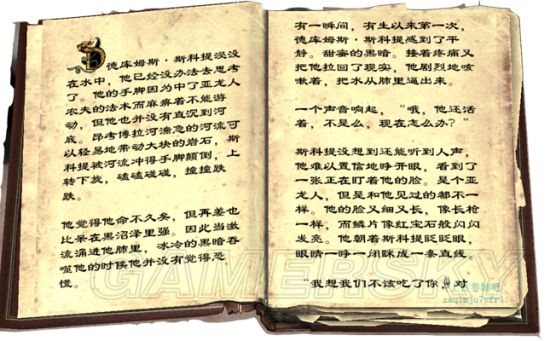 德库姆斯·斯科提浸没
在水中，他已经没办法去思考
了。他的手脚因为中了亚龙人
农夫的法术而麻痹着不能游
动，但他也并没有直沉到河
底。昂考博拉河湍急的河流可
以轻易地带动大块的岩石，斯
科提被河流冲得手脚颠倒，上
转下旋，磕磕碰碰，撞撞跌
跌。
他觉得他命不久矣，但再差也
比呆在黑沼泽里强。因此当激
流涌进他肺里，冰冷的黑暗吞
噬他的时候他并没有觉得恐
慌。
有一瞬间，有生以来第一次，
德库姆斯·斯科提感到了平
静。甜蜜的黑暗。接着疼痛又
把他拉回了现实，他剧烈地咳
嗽着，把水从肺里逼出来。
一个声音响起，“哦，他还活
着，不是么，现在怎么办？”
斯科提没想到还能听到人声，
他难以置信地睁开眼，看到了
一张正在盯着他的脸。是个亚
龙人，但是和他见过的都不一
样。他的脸又细又长，像长枪
一样，而鳞片像红宝石般闪闪
发亮。他朝着斯科提眨眨眼，
眼睛一睁一闭眯成一条直线。
“我想我们不该吃了你，对
GAMERSKY
卷轴吧
zaqimju7yfr4